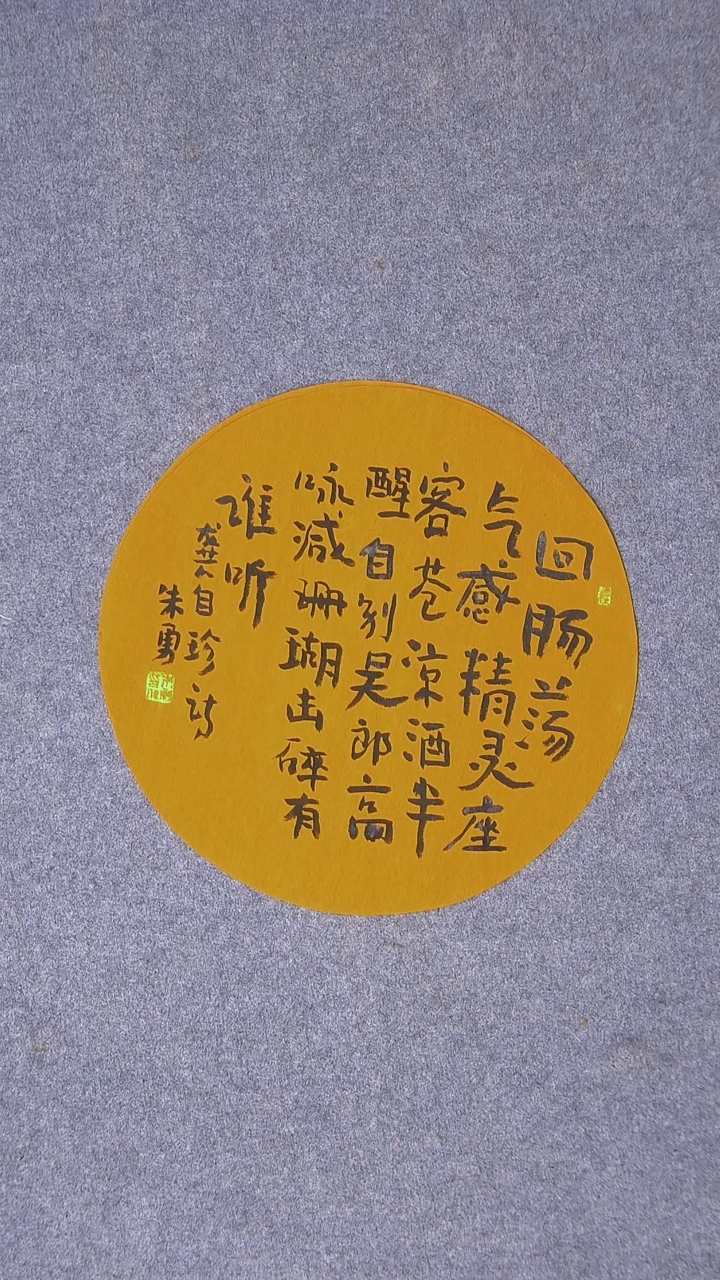 回肠荡
气感精灵座
客苍凉酒半
醒自别吴郎高
咏减珊瑚击碎有
谁听
龚自珍诗
朱勇